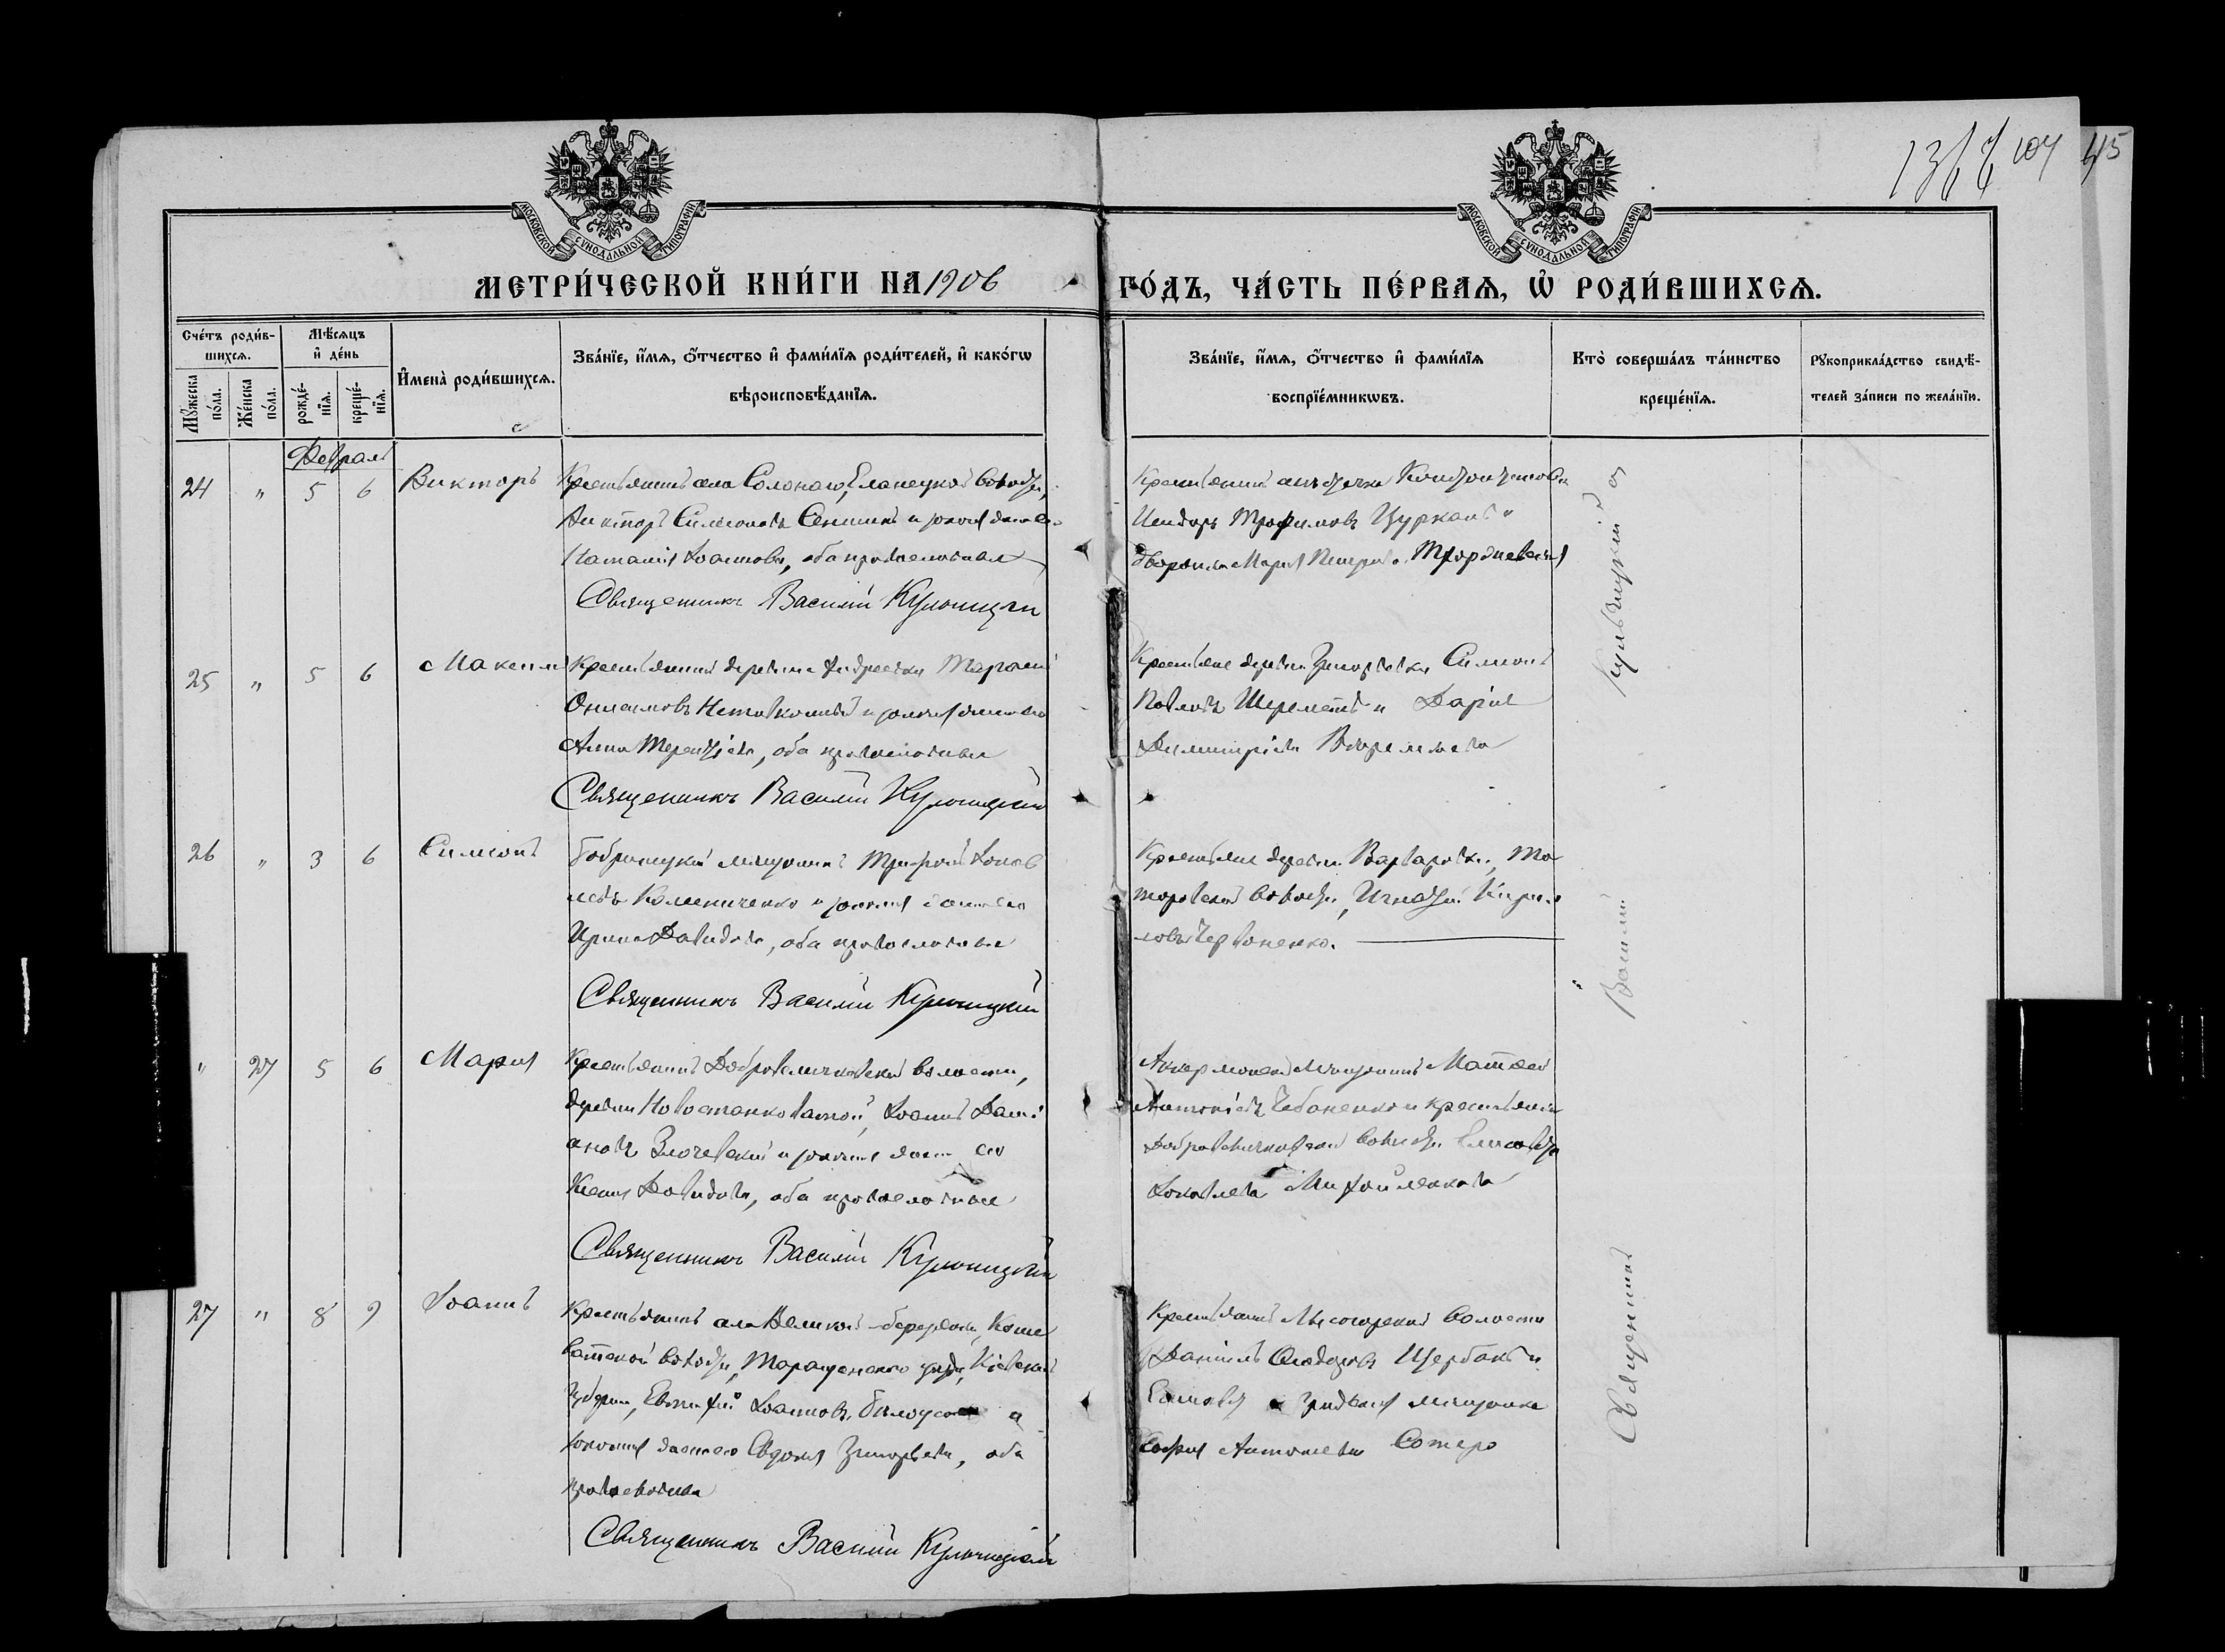 1367 107 415
МОСКОВСКОЙ СѴНОДАЛЬНОЙ ТИПОГРАФІИ
МОСКОВСКОЙ СѴНОДАЛЬНОЙ ТИПОГРАФІИ
МЕТРИ́ЧЕСКОЙ КНИ́ГИ НА 1906
ГО́ДЪ, ЧА́СТЬ ПЕ́РВАѦ, Ѡ҆ РОДИ́ВШИХСѦ.
Сче́тъ роди́в-
шихсѧ.
Мꙋ́жеска по́ла.
Же́нска по́ла.
Мѣ́сѧцъ
и҆ де́нь
рожде́-
нїѧ.
креще́-
нїѧ.
И҆мена̀ роди́вшихсѧ.
Зва́нїе, и҆́мѧ, ѻ҆́тчество и҆ фами́лїѧ роди́телей, и҆ како́гѡ
вѣроисповѣ́данїѧ.
Зва́нїе, и҆́мѧ, ѻ҆́тчество и҆ фами́лїѧ
воспрїе́мникѡвъ.
Кто̀ соверша́лъ та́инство
креще́нїѧ.
Рꙋкоприкла́дство свидѣ́-
телей за́писи по жела́нїю.
Февраль
24 " 5 6 Викторъ
Крестьянинъ села Солонаго, Еланецкой волости,
Викторъ Симеоновъ Сенинъ и законная жена его
Наталія Іоаннова, оба православные
Священникъ Василій Кульчицкій
Крестьянинъ
Исидоръ Трофимовъ Цурканъ и
дворянка Марія Петрова
25 " 5 6 Максимъ
Крестьянинъ деревни Андреевки Тарасій
Онисимовъ и законная жена его
Анна Терентіева, оба православные
Священникъ Василій Кульчицкій
Крестьяне деревни Григорьевки Симеонъ
Павловъ Шереметъ и Дарія
Димитріева
26 " 3 6 Симеонъ
Бобринецкій мещанинъ Трифонъ Іаков
левъ Калениченко и законная жена его
Ирина Давидова, оба православные
Священникъ Василій Кульчицкій
Крестьяне деревни Варваровки,
волости, Игнатій Кирил
ловъ Червоненко.
" 27 5 6 Марія
Крестьянинъ Добровеличковской волости,
деревни Новостанковатой, Іоаннъ Дамі
ановъ Злочевскій и законная жена его
Ксенія Давидова, оба православные
Священникъ Василій Кульчицкій
Аккерманскій мещанинъ Матѳей
Антоніевъ Чебаненко и крестьянка
Добровеличковской волости Елисавета
Іаковлева Михайленкова
27 " 8 9 Іоаннъ
Крестьянинъ села Великой-Березянки, Коше
ватской волости, Таращанскаго уѣзда, Кіевской
губерніи, Евѳимій Іоанновъ Бѣлоусъ и
законная жена его Евдокія Григорьева, оба
православные
Священникъ Василій Кульчицкій
Крестьянинъ Лысогорской волости
Даніилъ Ѳеодоровъ Щербакъ и
мещанка
Софія Антоніева
Священникъ Василій Кульчицкій